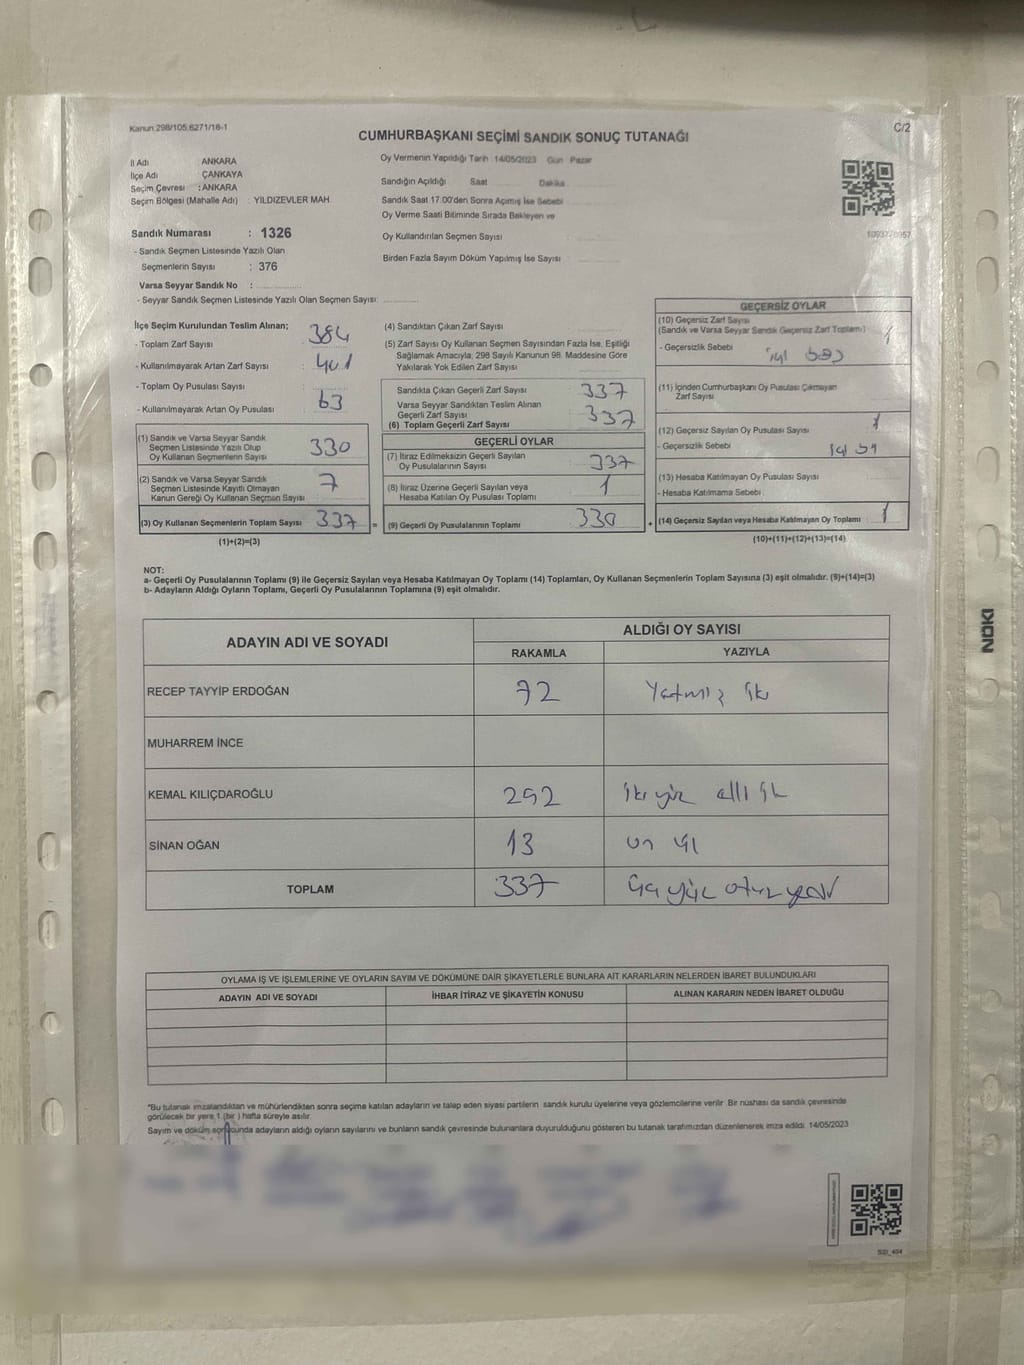 Kanun 298/105,6271/18-1
C/2
CUMHURBAŞKANI SEÇİMİ SANDIK SONUÇ TUTANAĞI
İl Adı ANKARA
İlçe Adı ÇANKAYA
Seçim Çevresi : ANKARA
Seçim Bölgesi (Mahalle Adı) : YILDIZEVLER MAH.
Sandık Numarası : 1326
- Sandık Seçmen Listesinde Yazılı Olan
Seçmenlerin Sayısı : 376
Varsa Seyyar Sandık No :
- Seyyar Sandık Seçmen Listesinde Yazılı Olan Seçmen Sayısı:
Oy Vermenin Yapıldığı Tarih 14/05/2023 Gün Pazar
Sandığın Açıldığı Saat Dakika
Sandık Saat 17.00'den Sonra Açımış İse Sebebi
Oy Verme Saati Bitiminde Sırada Bekleyen ve
Oy Kullandırılan Seçmen Sayısı
Birden Fazla Sayım Döküm Yapılmış İse Sayısı
İlçe Seçim Kurulundan Teslim Alınan;
- Toplam Zarf Sayısı : 384
- Kullanılmayarak Artan Zarf Sayısı : 401
- Toplam Oy Pusulası Sayısı : 63
- Kullanılmayarak Artan Oy Pusulası
(1) Sandık ve Varsa Seyyar Sandık
Seçmen Listesinde Yazılı Olup
Oy Kullanan Seçmenlerin Sayısı 330
(2) Sandık ve Varsa Seyyar Sandık
Seçmen Listesinde Kayıtlı Olmayan
Kanun Gereği Oy Kullanan Seçmen Sayısı 7
(3) Oy Kullanan Seçmenlerin Toplam Sayısı 337 =
(1)+(2)=(3)
(4) Sandıktan Çıkan Zarf Sayısı
(5) Zarf Sayısı Oy Kullanan Seçmen Sayısından Fazla İse, Eşitliği
Sağlamak Amacıyla, 298 Sayılı Kanunun 98. Maddesine Göre
Yakılarak Yok Edilen Zarf Sayısı
Sandıkta Çıkan Geçerli Zarf Sayısı 337
Varsa Seyyar Sandıktan Teslim Alınan
Geçerli Zarf Sayısı
(6) Toplam Geçerli Zarf Sayısı 337
GEÇERLİ OYLAR
(7) İtiraz Edilmeksizin Geçerli Sayılan
Oy Pusulalarının Sayısı 337
(8) İtiraz Üzerine Geçerli Sayılan veya
Hesaba Katılan Oy Pusulası Toplamı 1
(9) Geçerli Oy Pusulalarının Toplamı 330 +
GEÇERSİZ OYLAR
(10) Geçersiz Zarf Sayısı
(Sandık ve Varsa Seyyar Sandık Geçersiz Zarf Toplamı) 1
- Geçersizlik Sebebi
(11) İçinden Cumhurbaşkanı Oy Pusulası Çıkmayan
Zarf Sayısı
(12) Geçersiz Sayılan Oy Pusulası Sayısı 1
- Geçersizlik Sebebi
(13) Hesaba Katılmayan Oy Pusulası Sayısı
- Hesaba Katılmama Sebebi
(14) Geçersiz Sayılan veya Hesaba Katılmayan Oy Toplamı 1
(10)+(11)+(12)+(13)=(14)
NOT:
a- Geçerli Oy Pusulalarının Toplamı (9) ile Geçersiz Sayılan veya Hesaba Katılmayan Oy Toplamı (14) Toplamları, Oy Kullanan Seçmenlerin Toplam Sayısına (3) eşit olmalıdır. (9)+(14)=(3)
b- Adayların Aldığı Oyların Toplamı, Geçerli Oy Pusulalarının Toplamına (9) eşit olmalıdır.
ADAYIN ADI VE SOYADI
ALDIĞI OY SAYISI
RAKAMLA YAZIYLA
RECEP TAYYİP ERDOĞAN 72 Yetmiş iki
MUHARREM İNCE
KEMAL KILIÇDAROĞLU 252 iki yüz elli iki
SİNAN OĞAN 13 on üç
TOPLAM 337 üç yüz otuz yedi
OYLAMA İŞ VE İŞLEMLERİNE VE OYLARIN SAYIM VE DÖKÜMÜNE DAİR ŞİKAYETLERLE BUNLARA AİT KARARLARIN NELERDEN İBARET BULUNDUKLARI
ADAYIN ADI VE SOYADI İHBAR İTİRAZ VE ŞİKAYETİN KONUSU ALINAN KARARIN NEDEN İBARET OLDUĞU
*Bu tutanak imzalandıktan ve mühürlendikten sonra seçime katılan adayların ve talep eden siyasi partilerin sandık kurulu üyelerine veya gözlemcilerine verilir. Bir nüshası da sandık çevresinde
görülecek bir yere 1 (bir) hafta süreyle asılır.
Sayım ve döküm sonucunda adayların aldığı oyların sayılarını ve bunların sandık çevresinde bulunanlara duyurulduğunu gösteren bu tutanak tarafımızdan düzenlenerek imza edildi. 14/05/2023
NOKI